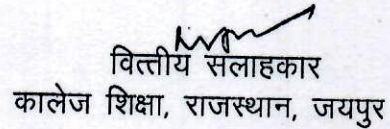 वित्तीय सलाहकार
कालेज शिक्षा, राजस्थान, जयपुर